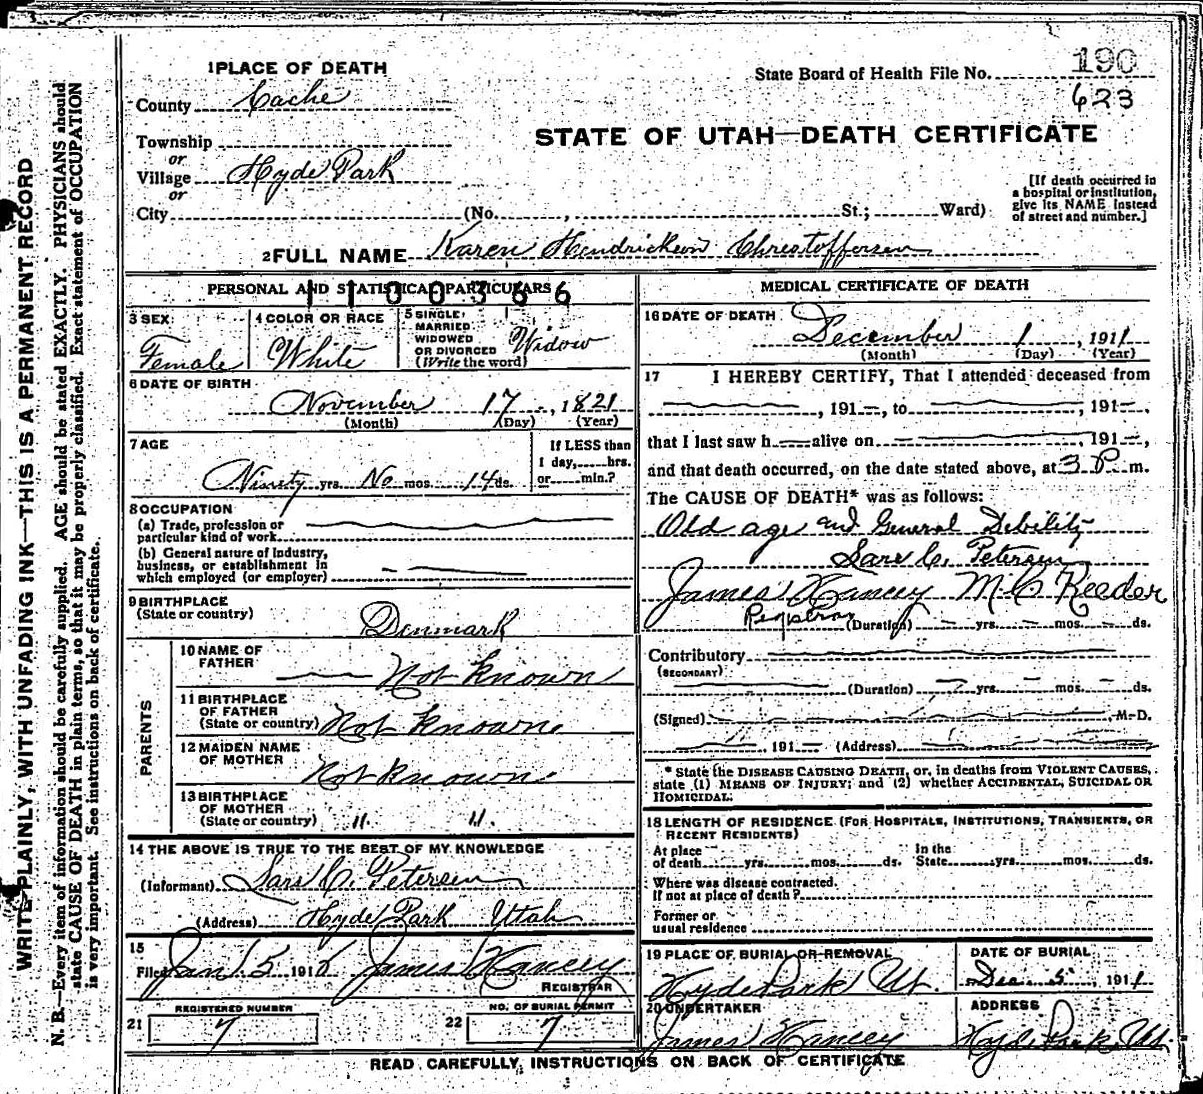 190
State Board of Health File No.
623
1 PLACE OF DEATH
County Cache
STATE OF UTAH—DEATH CERTIFICATE
Township
or
Village Hyde Park
or
City (No. , St.; Ward)
[If death occurred in
a hospital or institution,
give its NAME instead
of street and number.]
2 FULL NAME Karen Hendrickson Christoffersen
PERSONAL AND STATISTICAL PARTICULARS
1100366
3 SEX
Female
4 COLOR OR RACE
White
5 SINGLE,
MARRIED
WIDOWED
OR DIVORCED
(Write the word)
Widow
6 DATE OF BIRTH
November 17, 1821
(Month) (Day) (Year)
7 AGE
Ninety yrs. No mos. 14 ds.
If LESS than
1 day, hrs.
or min.?
8 OCCUPATION
(a) Trade, profession or
particular kind of work
(b) General nature of industry,
business, or establishment in
which employed (or employer)
9 BIRTHPLACE
(State or country)
Denmark
PARENTS
10 NAME OF
FATHER
Not known
11 BIRTHPLACE
OF FATHER
(State or country) Not known
12 MAIDEN NAME
OF MOTHER
Not known
13 BIRTHPLACE
OF MOTHER
(State or country) " "
14 THE ABOVE IS TRUE TO THE BEST OF MY KNOWLEDGE
(Informant) Lars C. Petersen
(Address) Hyde Park Utah
15
Filed Jan 5 191 James Hancey
REGISTRAR
REGISTERED NUMBER
21 7
NO. OF BURIAL PERMIT
22 7
MEDICAL CERTIFICATE OF DEATH
16 DATE OF DEATH
December 1, 1911
(Month) (Day) (Year)
17 I HEREBY CERTIFY, That I attended deceased from
, 191—, to , 191—,
that I last saw h alive on , 191—,
and that death occurred, on the date stated above, at 3 P. m.
The CAUSE OF DEATH* was as follows:
Old age and General Debility
Lars C. Petersen
James Hancey M C Reeder
Registrar (Duration) yrs. mos. ds.
Contributory
(SECONDARY)
(Duration) yrs. mos. ds.
(Signed) , M-D.
, 191— (Address)
* State the DISEASE CAUSING DEATH, or, in deaths from VIOLENT CAUSES,
state (1) MEANS OF INJURY; and (2) whether ACCIDENTAL, SUICIDAL OR
HOMICIDAL.
18 LENGTH OF RESIDENCE (FOR HOSPITALS, INSTITUTIONS, TRANSIENTS, OR
RECENT RESIDENTS)
At place
of death yrs. mos. ds.
In the
State yrs. mos. ds.
Where was disease contracted.
If not at place of death?
Former or
usual residence
19 PLACE OF BURIAL OR REMOVAL
Hyde Park Ut.
DATE OF BURIAL
Dec 5, 1911
20 UNDERTAKER
James Hancey
ADDRESS
Hyde Park, Ut.
READ CAREFULLY, INSTRUCTIONS ON BACK OF CERTIFICATE
WRITE PLAINLY, WITH UNFADING INK—THIS IS A PERMANENT RECORD
N. B.—Every item of information should be carefully supplied. AGE should be stated EXACTLY. PHYSICIANS should
state CAUSE OF DEATH in plain terms, so that it may be properly classified. Exact statement of OCCUPATION
is very important. See instructions on back of certificate.